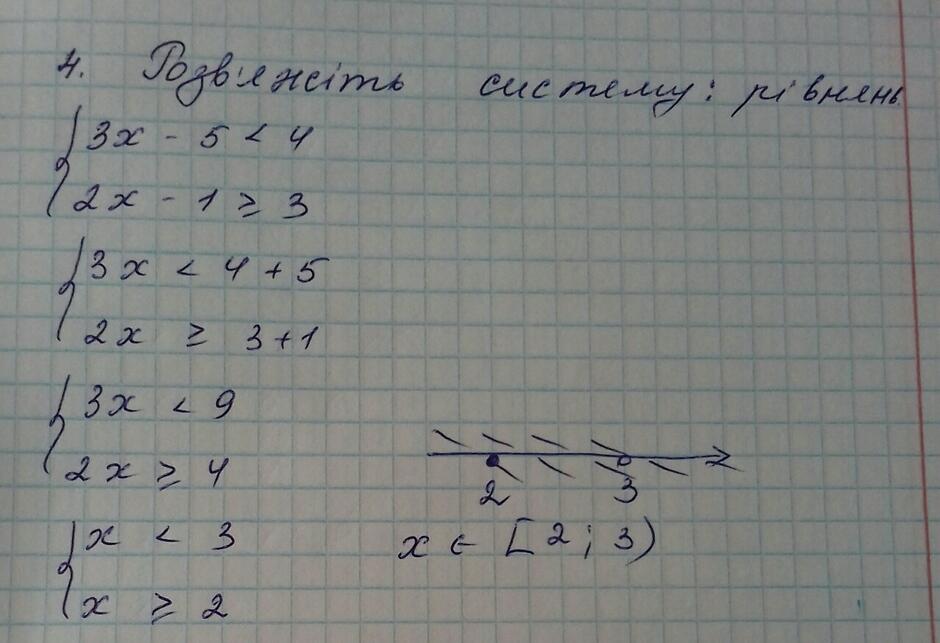 4. Розв'яжіть систему: рівнянь
3x - 5 < 4
2x - 1 ≥ 3
3x < 4 + 5
2x ≥ 3 + 1
3x < 9
2x ≥ 4
2 3
x < 3
x ∈ [2; 3)
x ≥ 2